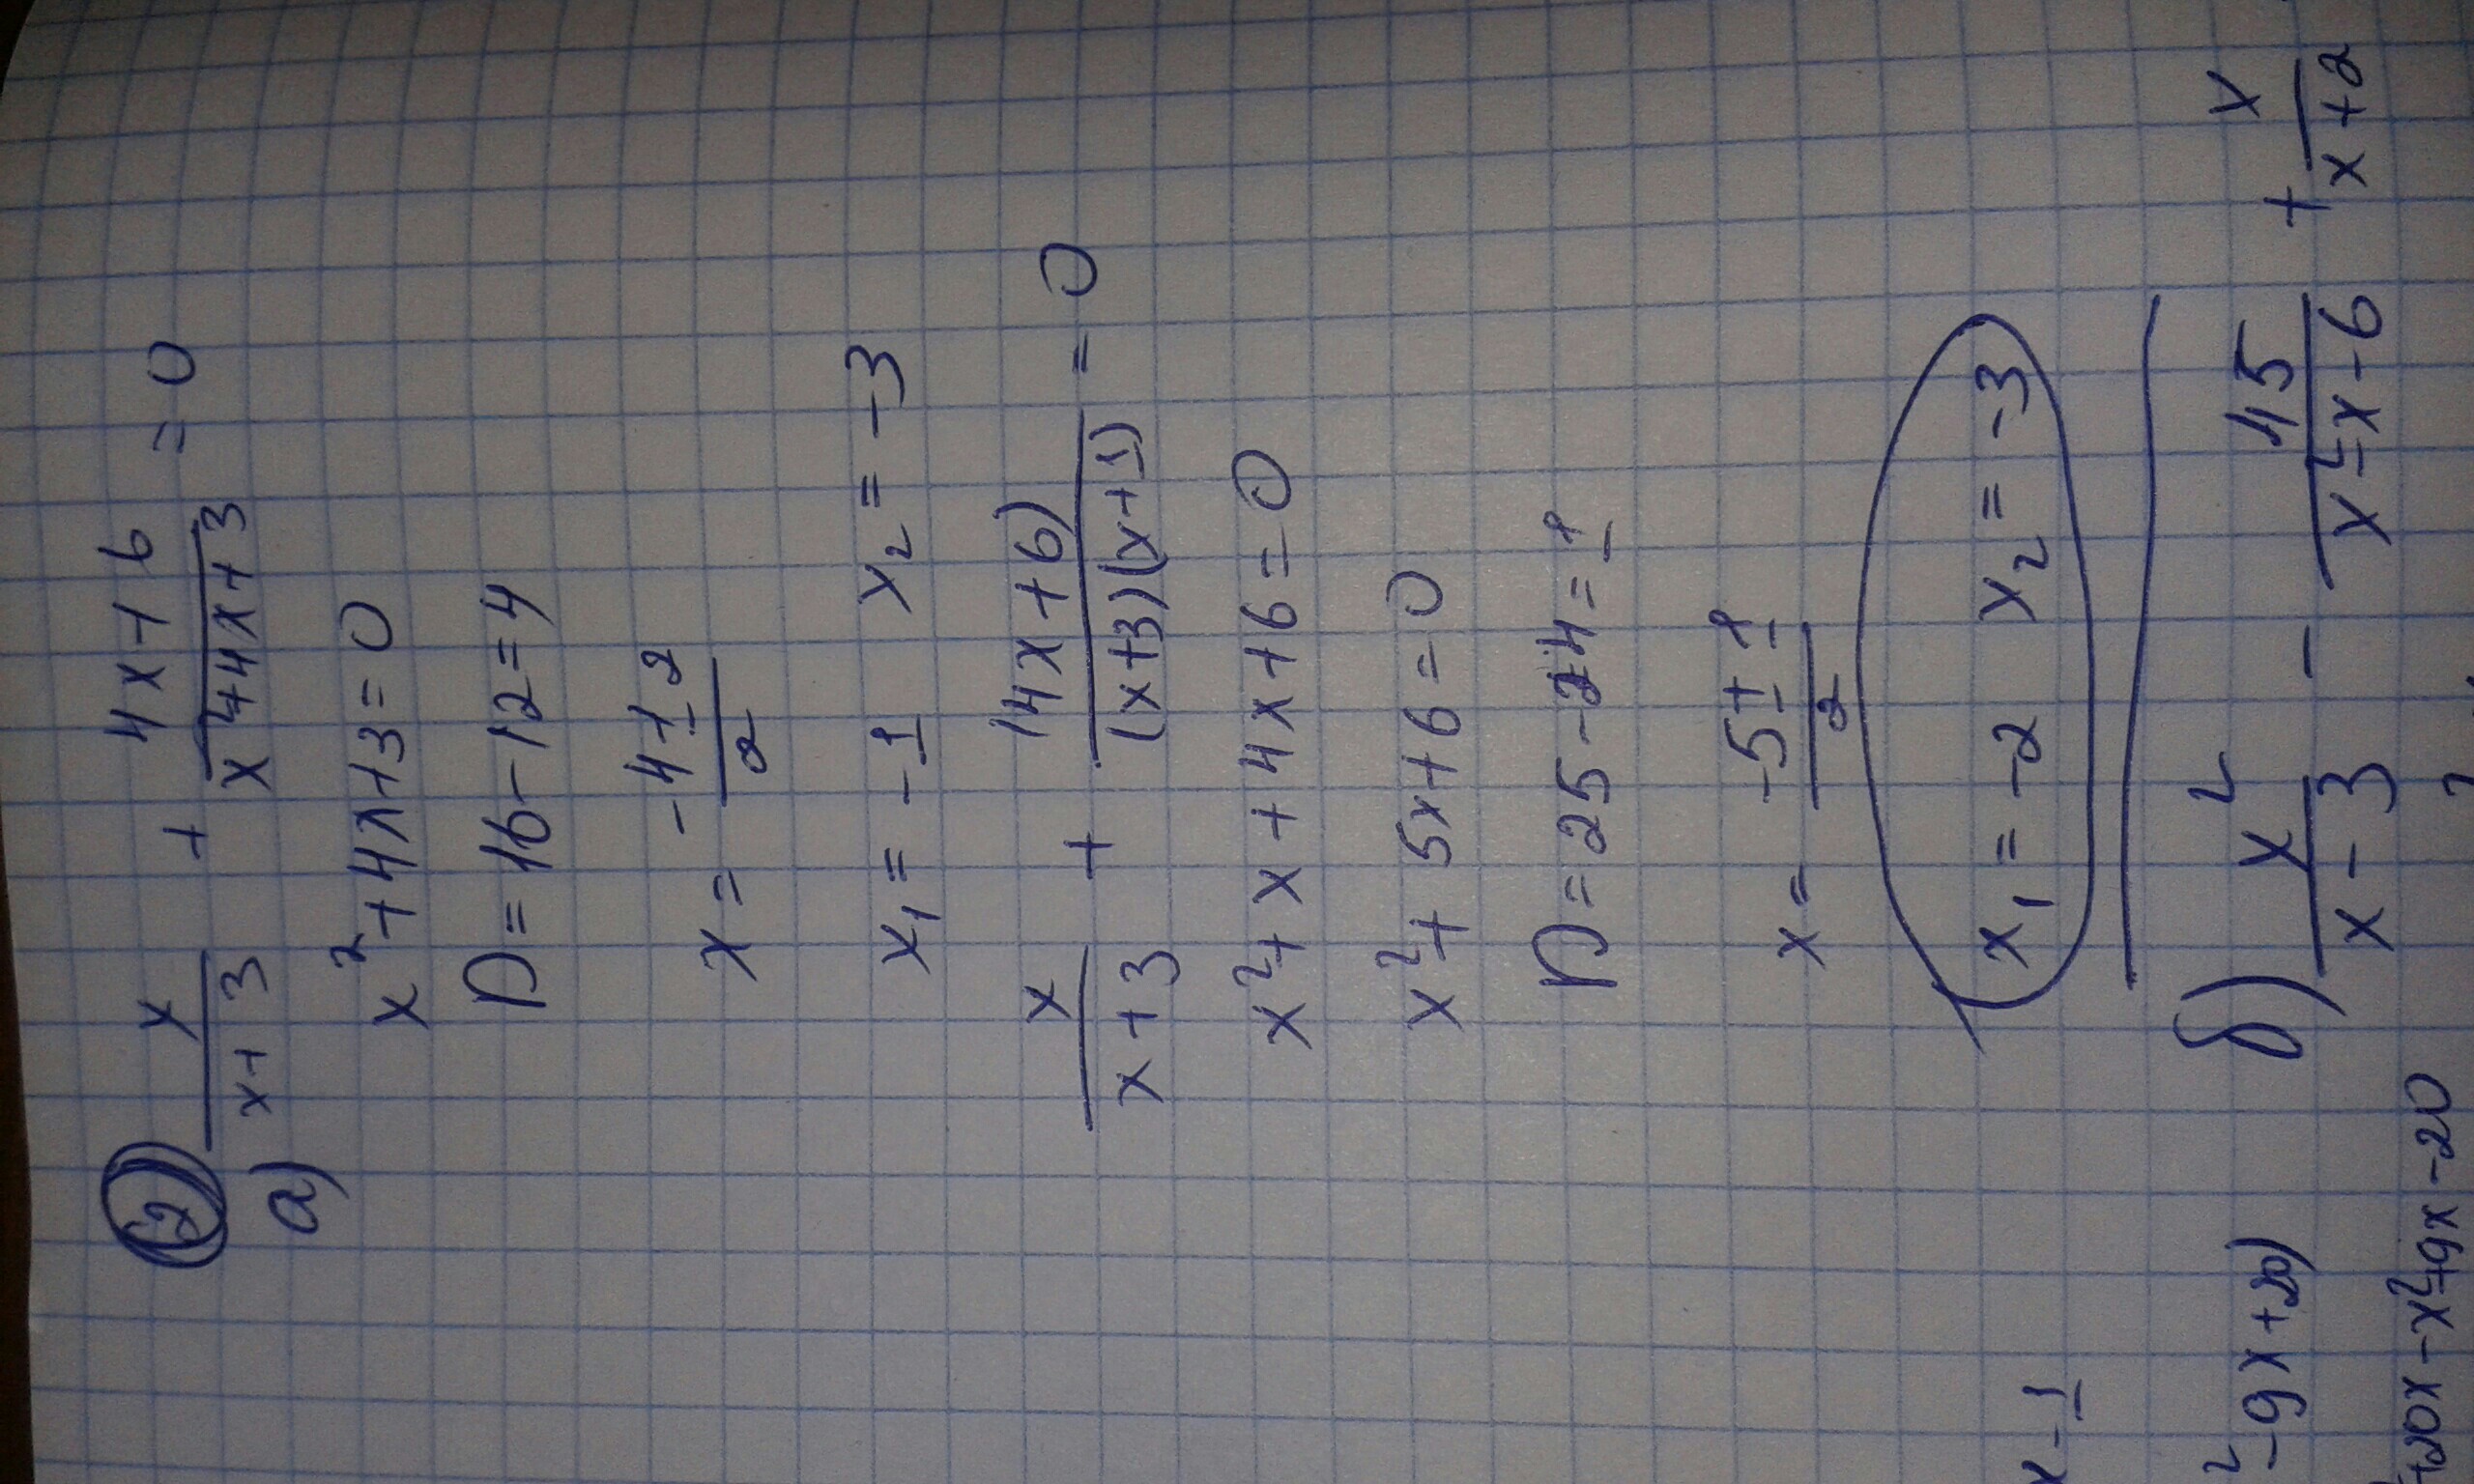 2 x/(x+3) + (4x+6)/(x²+4x+3) = 0
а)
x²+4x+3=0
D=16-12=4
x = (-4±2)/2
x₁ = -1 x₂ = -3
x/(x+3) + (4x+6)/((x+3)(x+1)) = 0
x²+x+4x+6=0
x²+5x+6=0
D=25-24=1
x = (-5±1)/2
x₁=-2 x₂=-3
б) x²/(x-3) - 45/(x²-x-6) + x/(x+2)
x-1
²-9x+20)
+20x-x²+9x-20